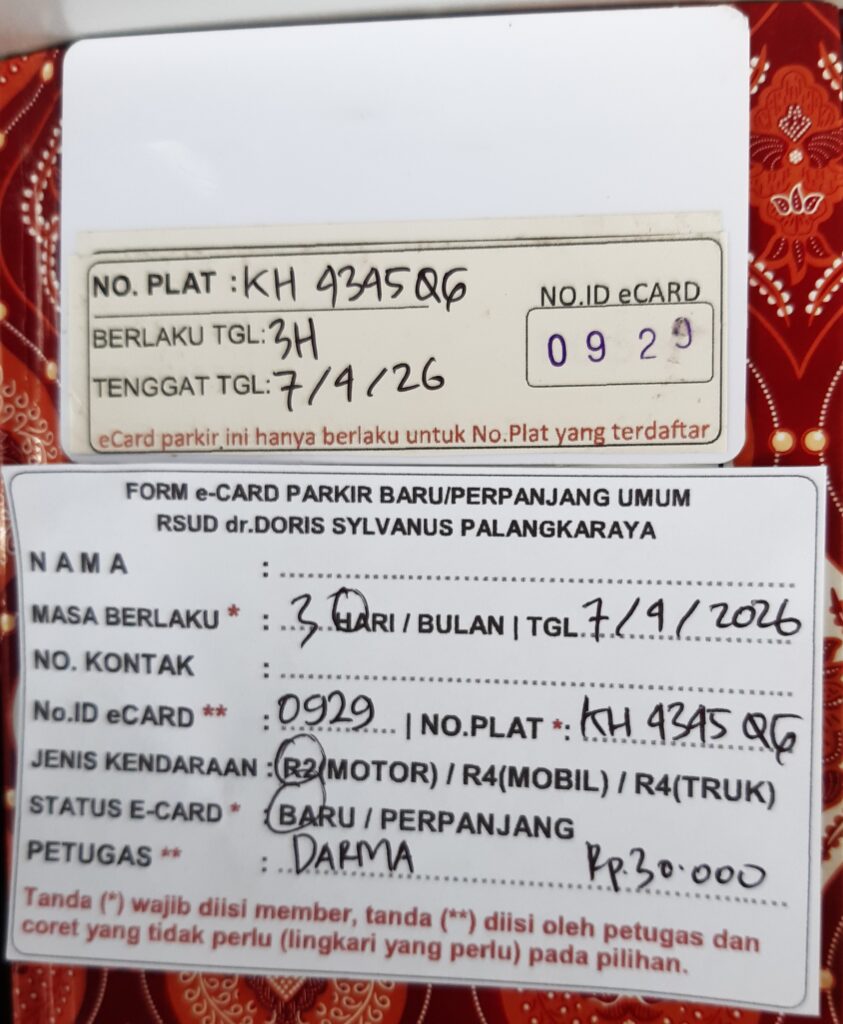 NO. PLAT : KH 4345 QG
NO.ID eCARD
BERLAKU TGL: 3H
0929
TENGGAT TGL: 7/4/26
eCard parkir ini hanya berlaku untuk No.Plat yang terdaftar
FORM e-CARD PARKIR BARU/PERPANJANG UMUM
RSUD dr.DORIS SYLVANUS PALANGKARAYA
NAMA : ....................
MASA BERLAKU * : 3 HARI / BULAN | TGL. 7/4/2026
NO. KONTAK : ....................
No.ID eCARD ** : 0929 | NO.PLAT *: KH 4345 QG
JENIS KENDARAAN : R2(MOTOR) / R4(MOBIL) / R4(TRUK)
STATUS E-CARD * : BARU / PERPANJANG
PETUGAS ** : DARMA Rp.30.000
Tanda (*) wajib diisi member, tanda (**) diisi oleh petugas dan
coret yang tidak perlu (lingkari yang perlu) pada pilihan.